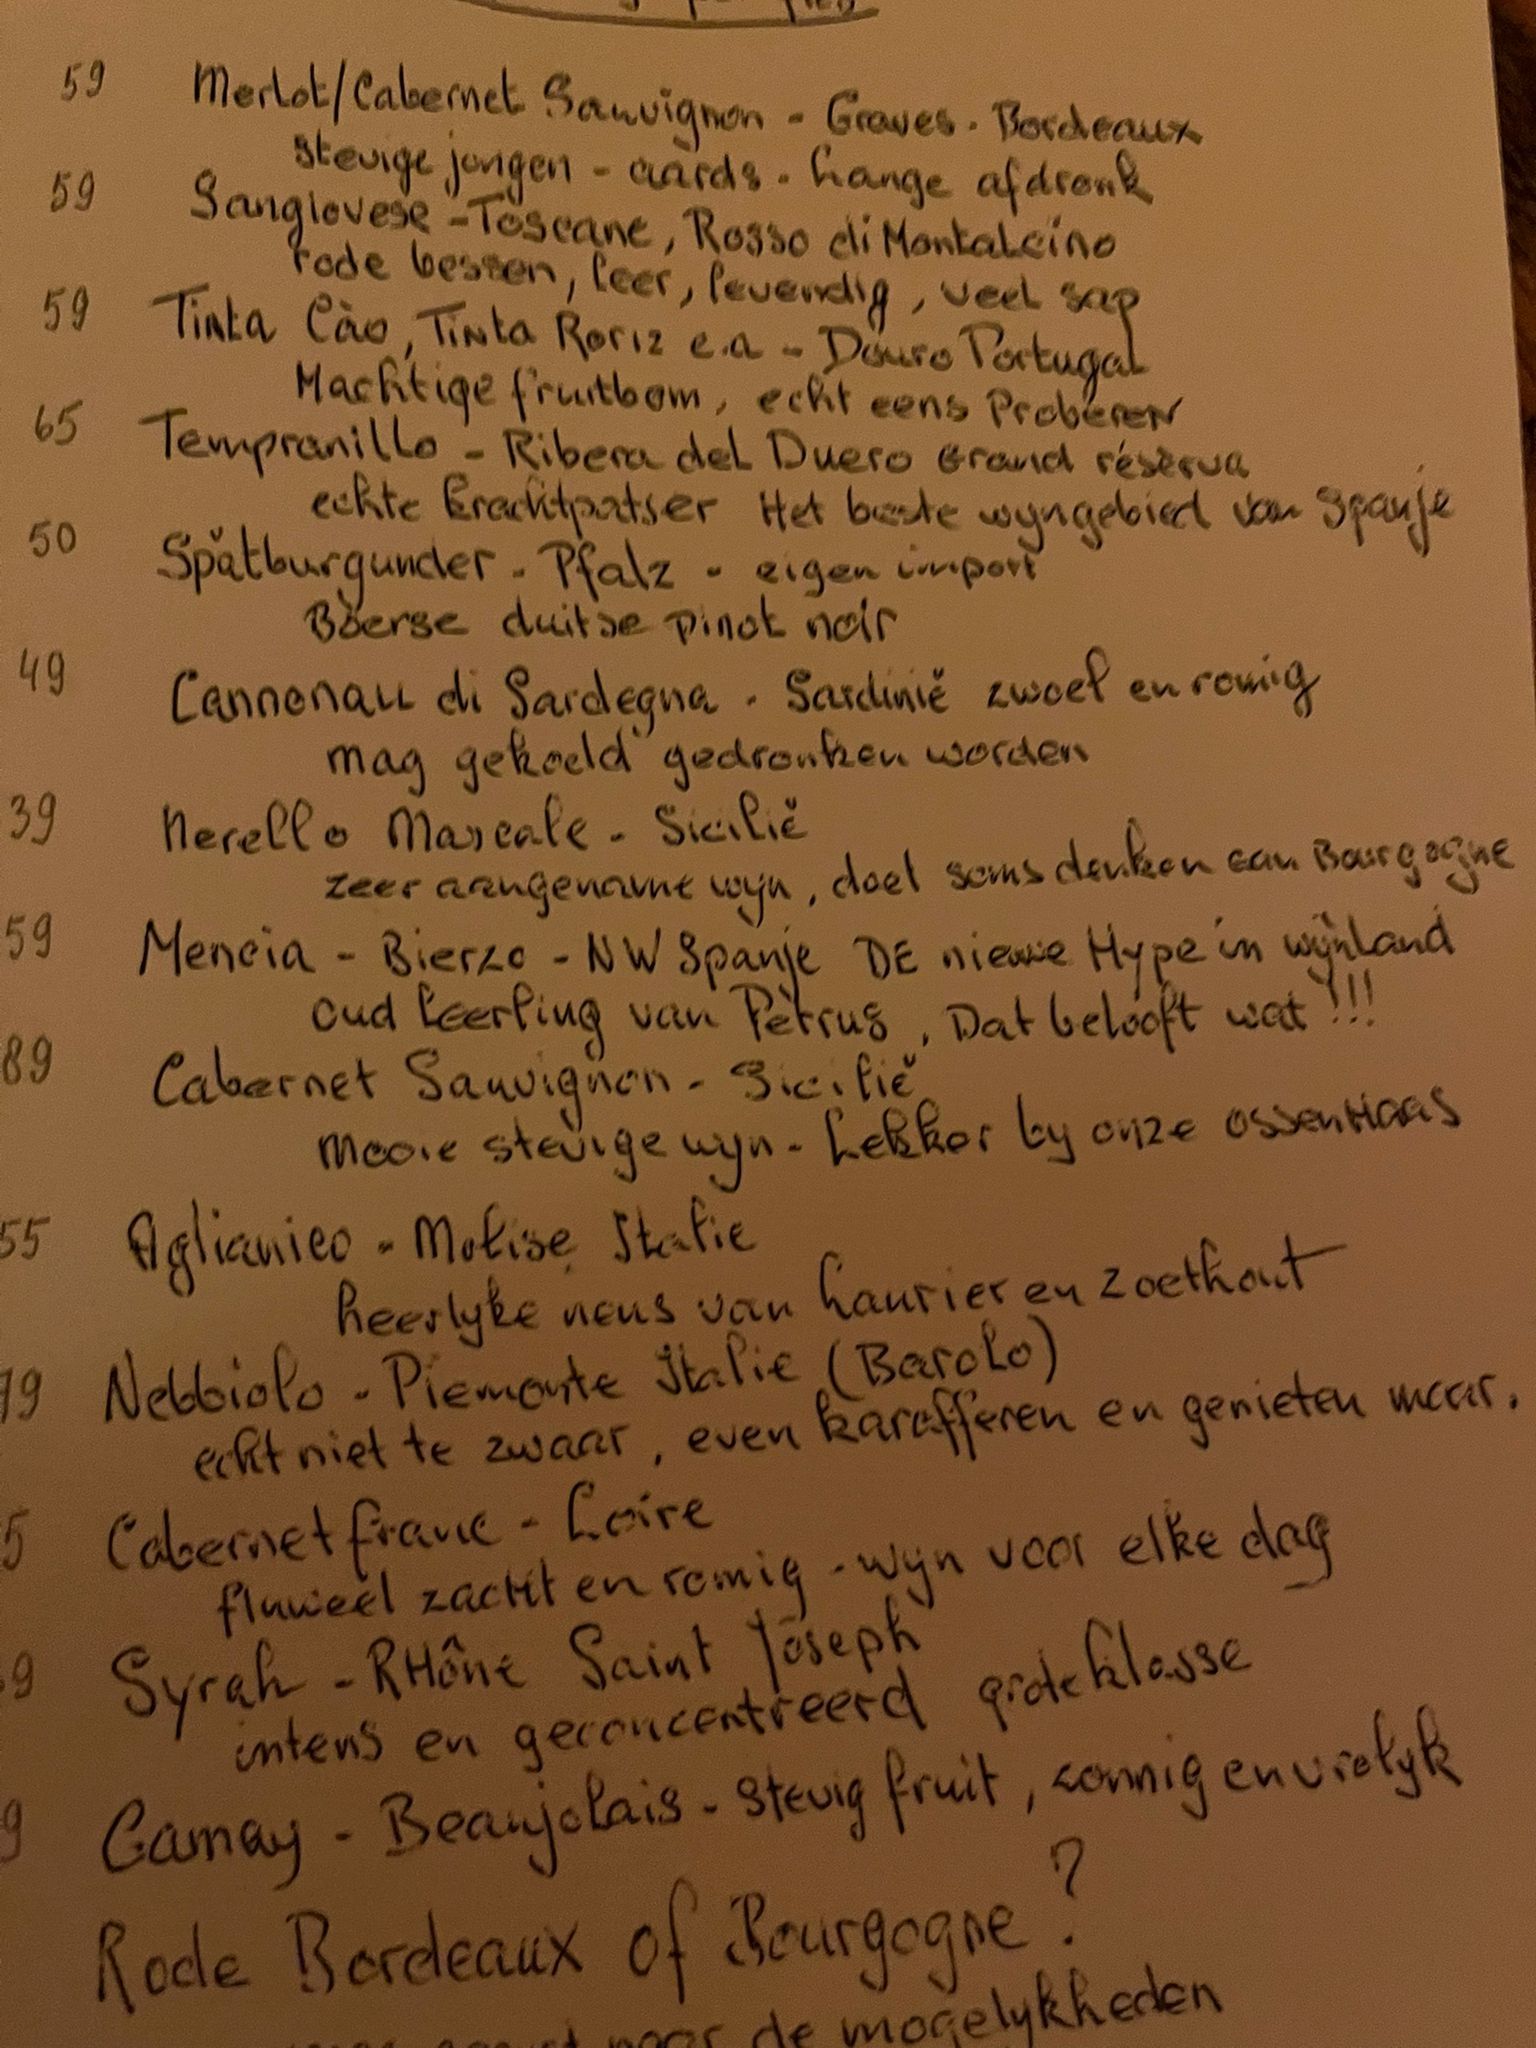 59 Merlot/Cabernet Sauvignon - Graves - Bordeaux
stevige jongen - aards - lange afdronk
59 Sangiovese - Toscane, Rosso di Montalcino
rode bessen, leer, levendig, veel sap
59 Tinta Cào, Tinta Roriz e.a - Douro Portugal
Machtige fruitbom, echt eens Proberen
65 Tempranillo - Ribera del Duero Grand réserva
echte krachtpatser Het beste wijngebied van Spanje
50 Spätburgunder - Pfalz - eigen import
Bóerse duitse pinot noir
49 Cannonau di Sardegna - Sardinië zwoel en romig
mag gekoeld gedronken worden
39 Nerello Mascale - Sicilië
zeer aangename wijn, doet soms denken aan Bourgogne
59 Mencia - Bierzo - NW Spanje DE nieuwe Hype in wijnland
oud leerling van Pètrus, Dat belooft wat !!!
89 Cabernet Sauvignon - Sicilië
Mooie stevige wijn - Lekker bij onze ossenHaas
55 Aglianico - Molise Italie
heerlijke neus van laurier en zoethout
79 Nebbiolo - Piemonte Italie (Barolo)
echt niet te zwaar, even karafferen en genieten maar.
5 Cabernet franc - Loire
fluweel zacht en romig - wijn voor elke dag
9 Syrah - RHône Saint Joseph
intens en geconcentreerd grote klasse
9 Gamay - Beaujolais - stevig fruit, zonnig en vrolijk
Rode Bordeaux of Bourgogne?
naar de mogelijkheden